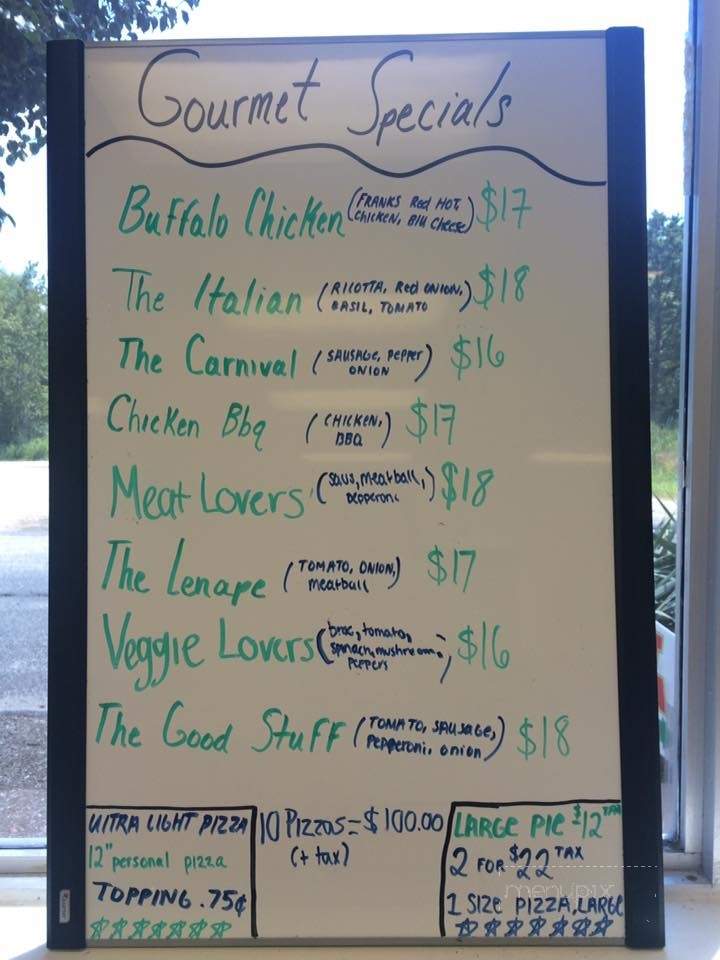 Gourmet Specials
Buffalo Chicken (FRANKS Red HOT, $17
Chicken, Blu Cheese)
The Italian (RICOTTA, Red ONION, $18
BASIL, TOMATO)
The Carnival (SAUSAGE, Pepper $16
ONION)
Chicken Bbq (CHICKEN, $17
BBQ)
Meat Lovers (Saus, meatball, $18
pepperoni)
The Lenape (TOMATO, ONION, $17
meatball)
Veggie Lovers (broc, tomato, $16
spinach, mushroom,
peppers)
The Good Stuff (TOMATO, SAUSAGE, $18
Pepperoni, onion)
UlTRA LIGHT PIZZA
12" personal pizza
TOPPING .75¢
10 Pizzas = $100.00
(+ tax)
LARGE PIE $12 TAX
2 FOR $22 TAX
1 SIZE PIZZA, LARGE
menupix